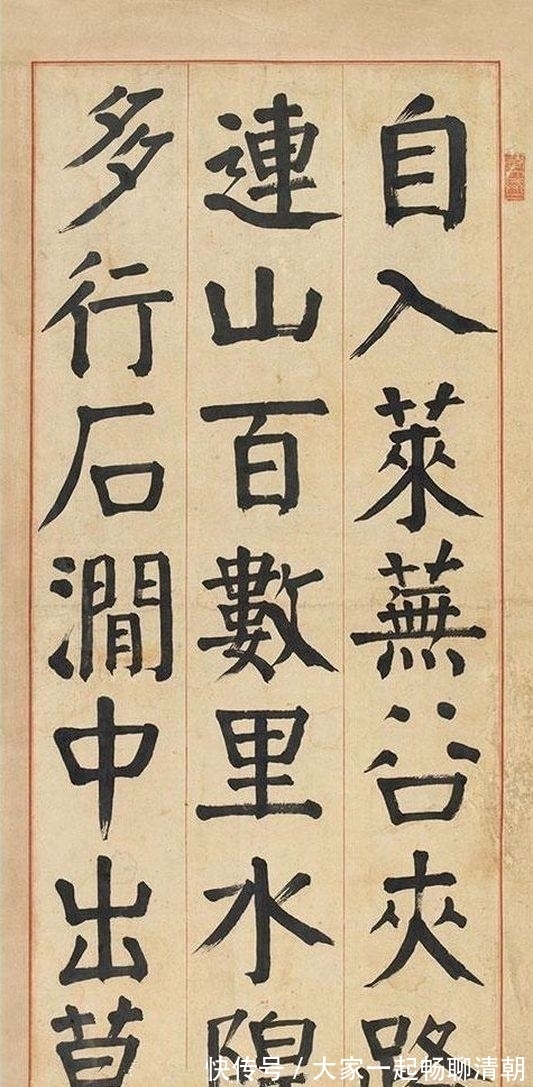 自入萊蕪谷夾路
連山百數里水隍
多行石澗中出草
快传号 / 大家一起畅聊清朝